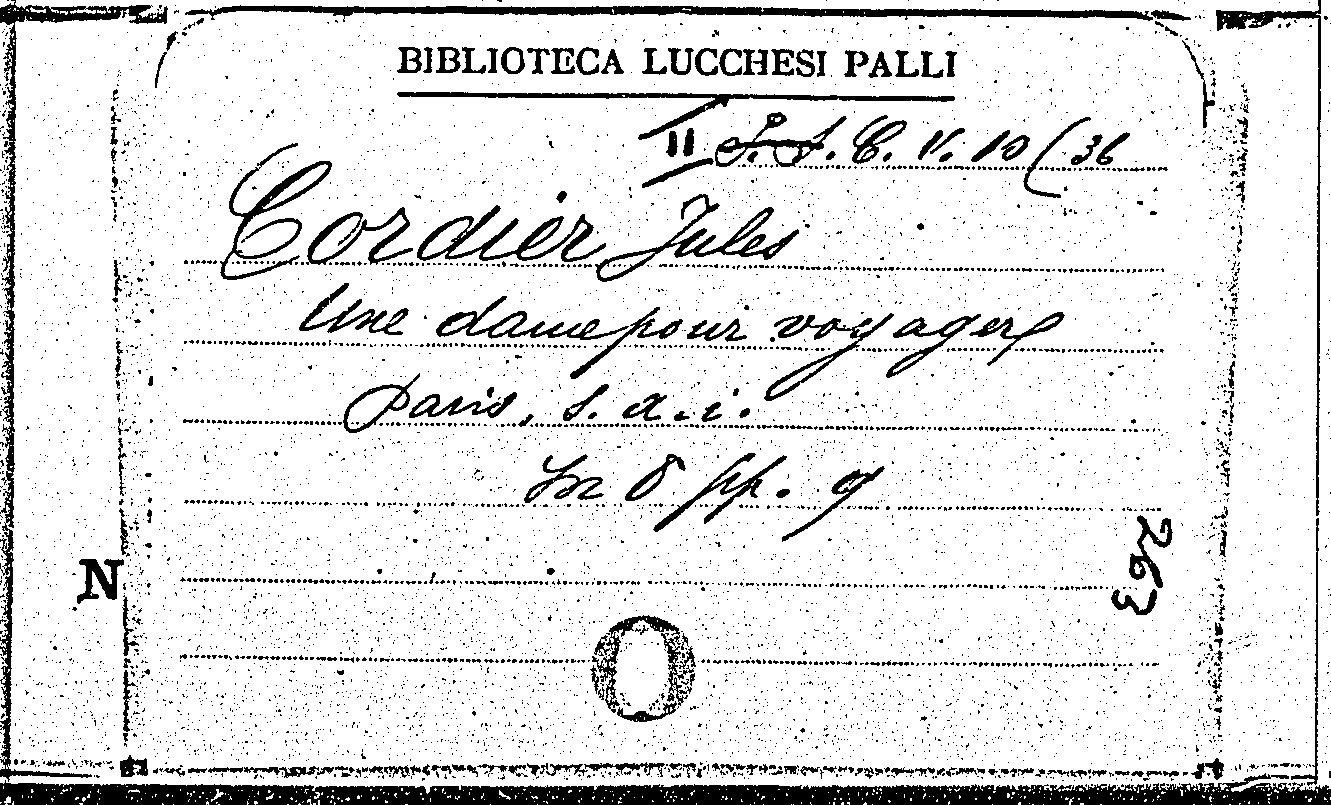 BIBLIOTECA LUCCHESI PALLI
II S. J. C. V. 10 (36
Cordier Jules
Une dame pour voyager
Paris, s. a. i.
In 8 pp. 9
N
263